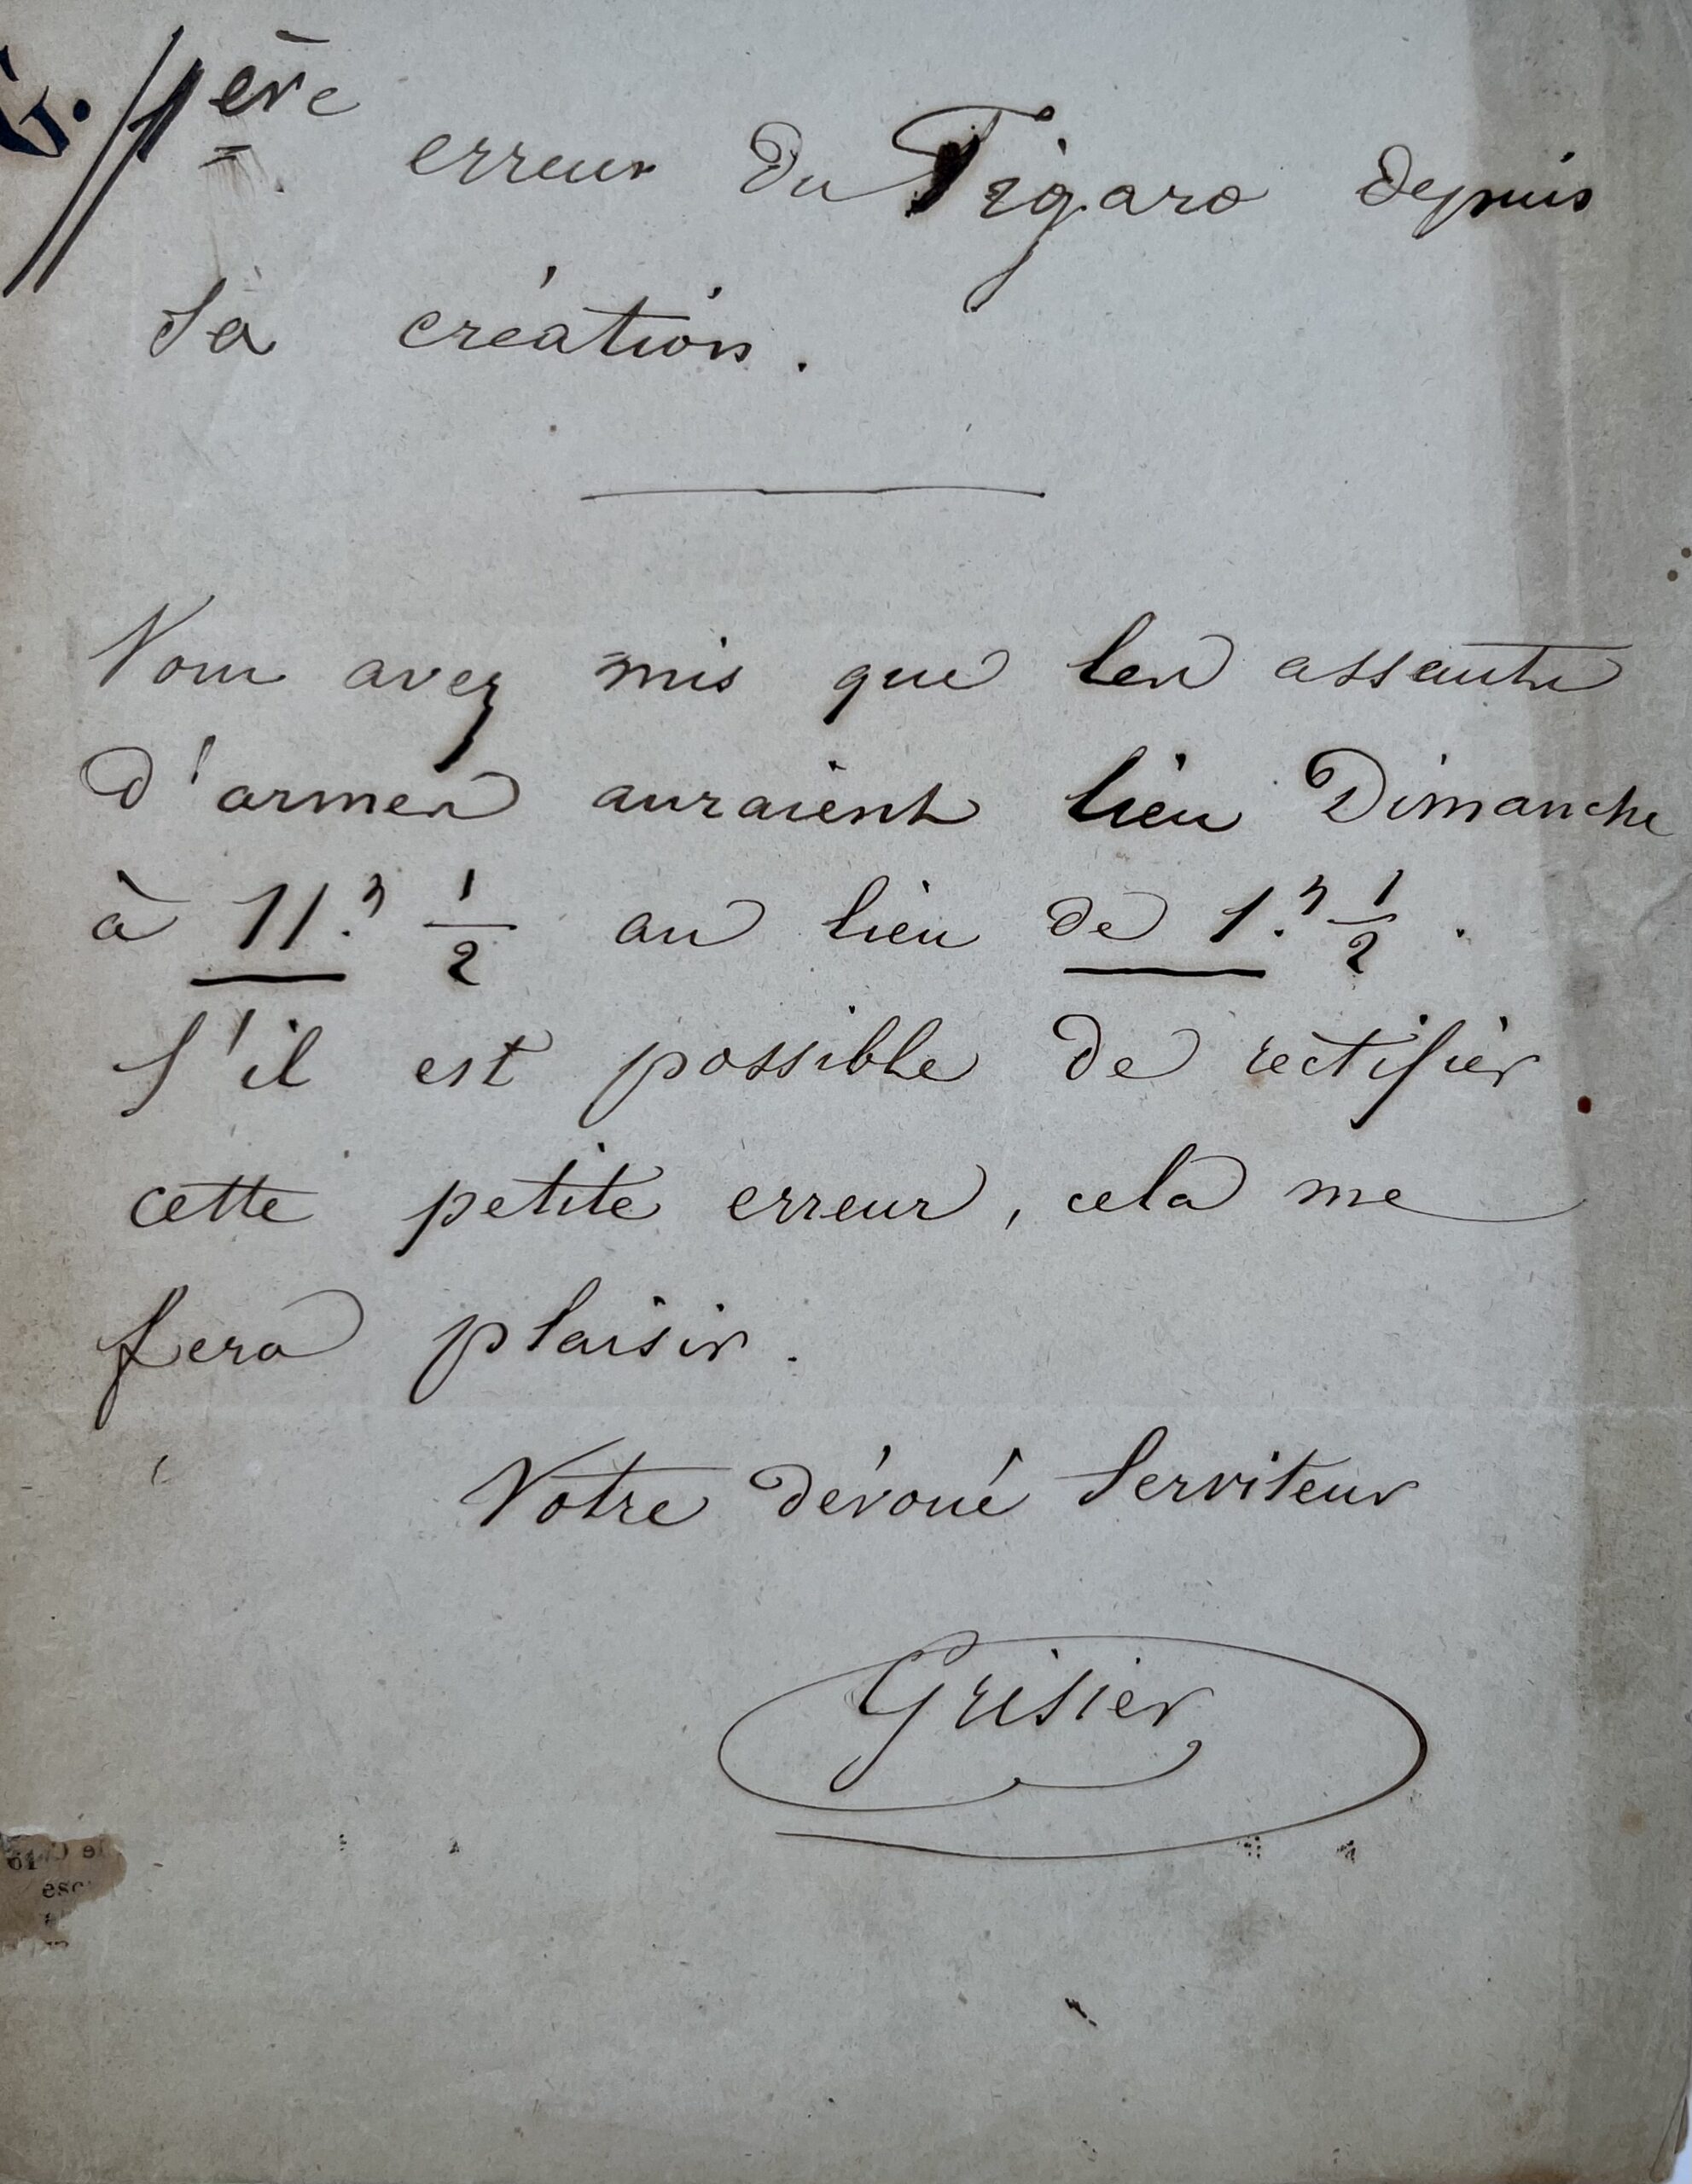 G.
1ère erreur du Figaro depuis
sa création.
Vous avez mis que les assauts
d'armes auraient lieu Dimanche
à 11.h 1/2 au lieu de 1.h 1/2.
S'il est possible de rectifier
cette petite erreur, cela me
fera plaisir.
Votre dévoué Serviteur
Grisier